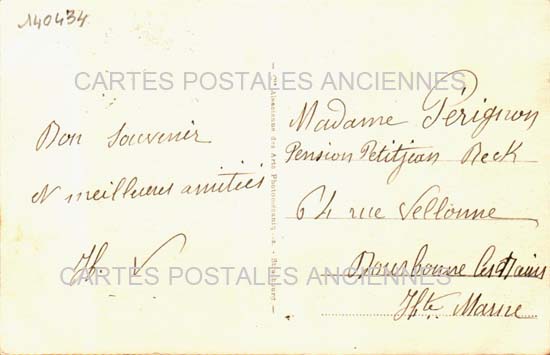 140434
CARTES POSTALES ANCIENNES
Bon Souvenir
et meilleures amitiés
H. V
Cie Alsacienne des Arts Photomécaniques - Strasbourg
Madame Pérignon
Pension Petitjean Beck
64 rue Vellonne
Bourbonne les Bains
Hte Marne
CARTES POSTALES ANCIENNES